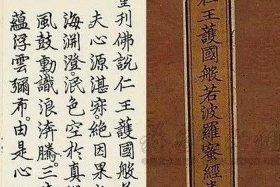 仁王護國般若波羅蜜經
刊佛說仁王護國般
夫心源湛寂絕因果
海淵澄。泯色空於真
風鼓動識浪奔騰三
蘊浮雲彌布。由是心